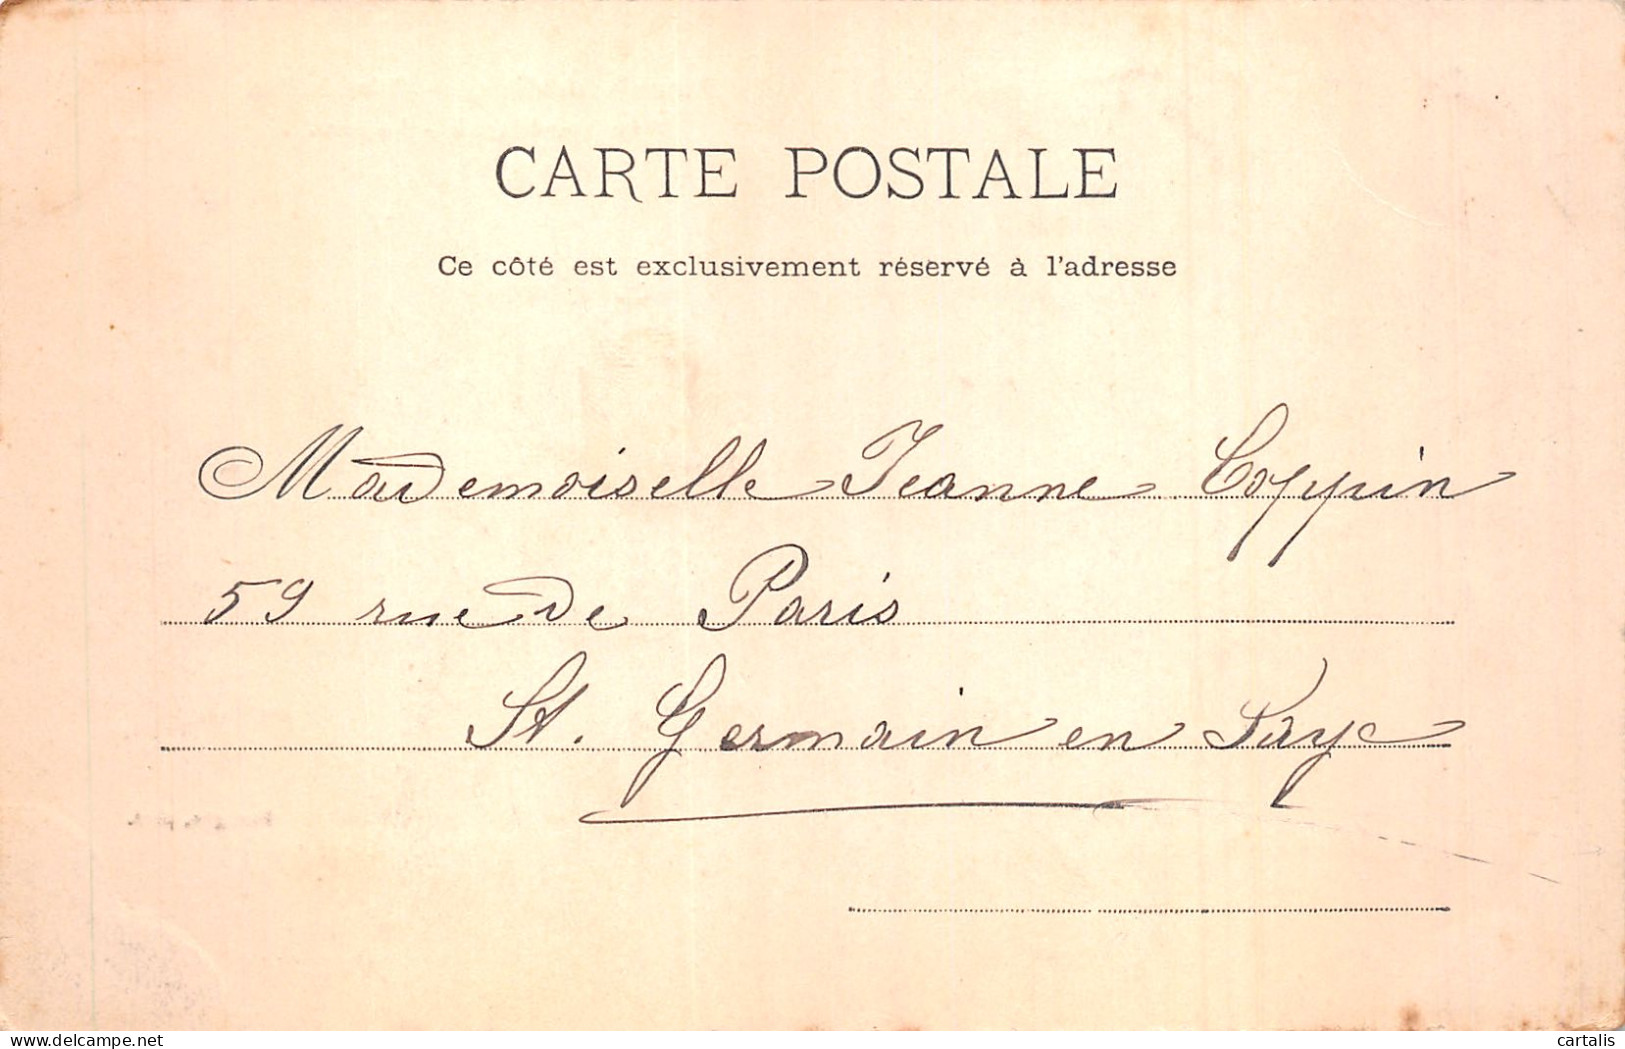 CARTE POSTALE
Ce côté est exclusivement réservé à l'adresse
Mademoiselle Jeanne Coppin
59 rue de Paris
St. Germain en Laye
delcampe.net
cartalis